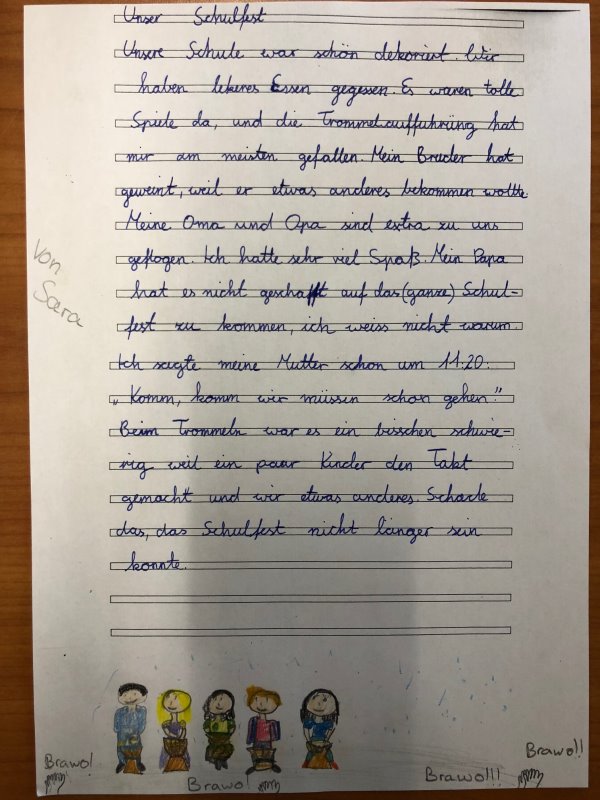 Unser Schulfest
Unsere Schule war schön dekoriert. Wir
haben lekeres Essen gegessen. Es waren tolle
Spiele da, und die Trommelaufführung hat
mir am meisten gefallen. Mein Bruder hat
geweint, weil er etwas anderes bekommen wollte.
Meine Oma und Opa sind extra zu uns
geflogen. Ich hatte sehr viel Spaß. Mein Papa
hat es nicht geschafft auf das (ganze) Schul-
fest zu kommen, ich weiss nicht warum.
Ich sagte meine Mutter schon um 11:20:
„Komm, komm wir müssin schon gehen!"
Beim Trommeln war es ein bisschen schwie-
rig weil ein paar Kinder den Takt
gemacht und wir etwas anderes. Schade
das, das Schulfest nicht länger sein
konnte.
von
Sara
Brawo!
Brawo!
Brawo!!!
Brawo!!